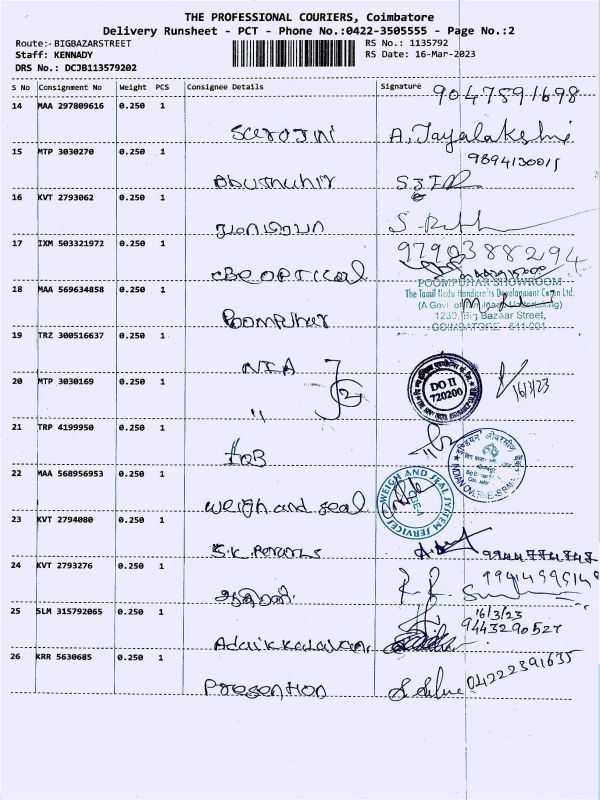 THE PROFESSIONAL COURIERS, Coimbatore
Delivery Runsheet - PCT - Phone No.:0422-3505555 - Page No.:2
Route:- BIGBAZARSTREET
RS No.: 1135792
Staff: KENNADY
RS Date: 16-Mar-2023
DRS No.: DCJB113579202
S No Consignment No Weight PCS Consignee Details Signature
9047591698
14 MAA 297809616 0.250 1
Sarojini A. Jayalakshmi
15 MTP 3030270 0.250 1 9894130015
16 KVT 2793062 0.250 1
17 IXM 503321972 0.250 1 9790388294
CBE OPTICAL
18 MAA 569634858 0.250 1
POOMPUHAR SHOWROOM
The Tamil Nadu Handicrafts Development Corpn Ltd.
(A Govt of Tamilnadu Undertaking)
1233, Big Bazaar Street,
COIMBATORE - 641 001
Poompuhar
19 TRZ 300516637 0.250 1
NIA
20 MTP 3030169 0.250 1
DO II
720200
16/3/23
"
21 TRP 4199950 0.250 1
IOB
इण्डियन ओवरसीज़ बैंक
INDIAN OVERSEAS BANK
22 MAA 568956953 0.250 1
weigh and seal
WEIGH AND SEAL SYSTEM SERVICES
CBE-1
23 KVT 2794080 0.250 1
S.K.
24 KVT 2793276 0.250 1
25 SLM 315792065 0.250 1 16/3/23
9443290527
26 KRR 5630685 0.250 1
04222391635